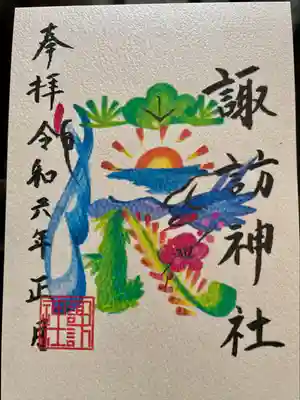 諏訪神社
奉拝令和六年正月